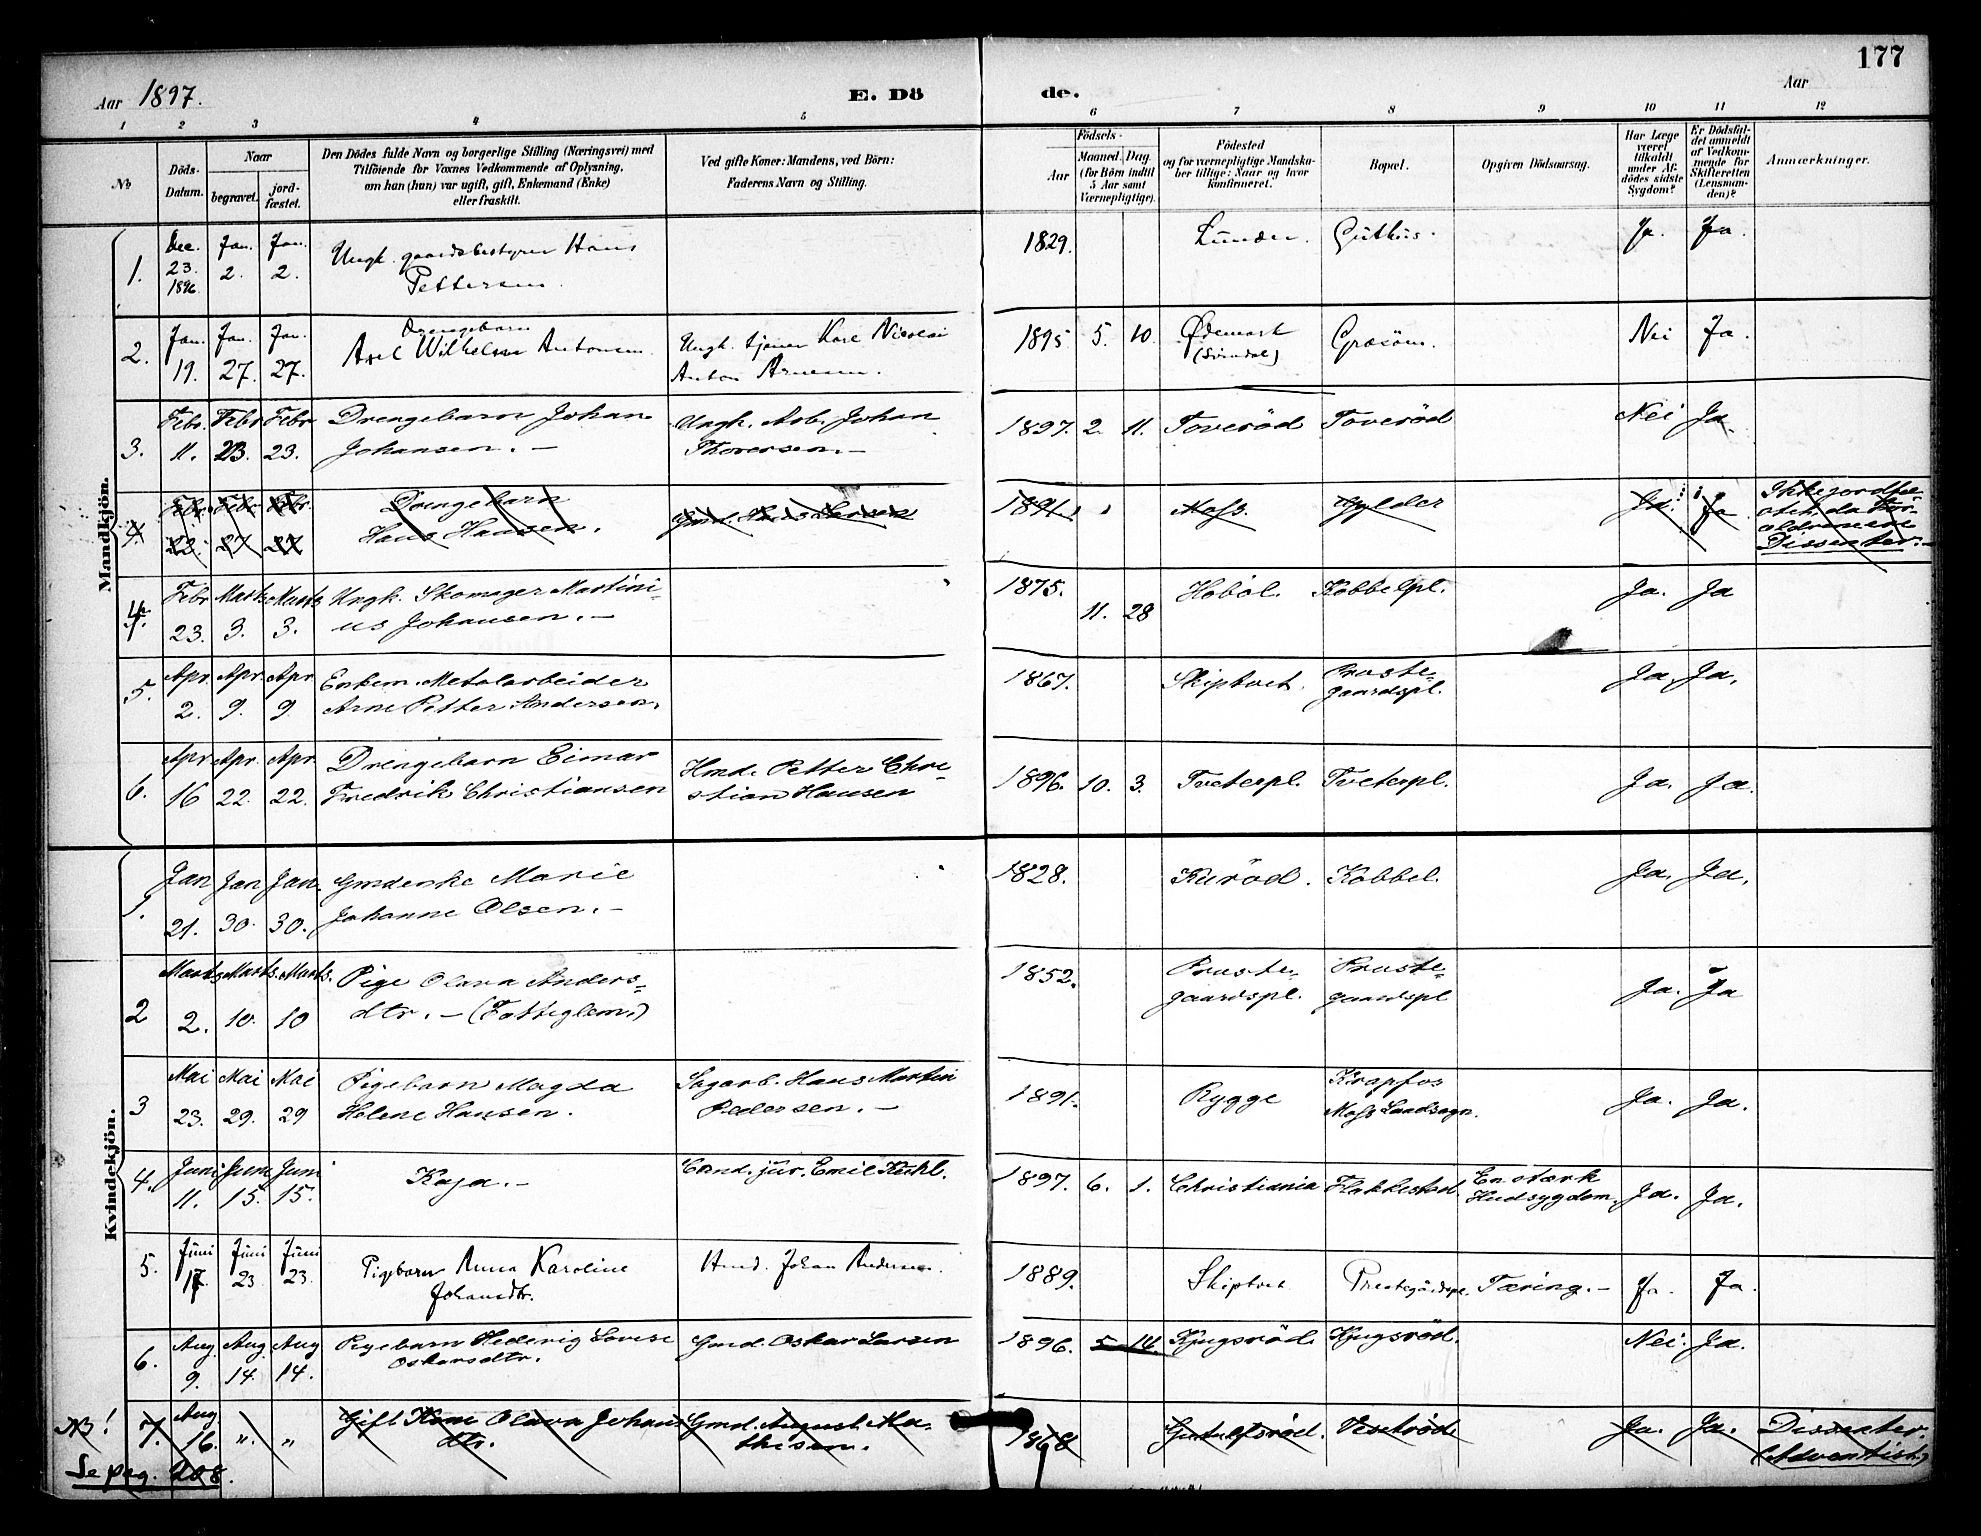 177
Aar 1897. E. Dö de. Aar
1 2 3 4 5 6 7 8 9 10 11 12
No
Döds-
Datum.
Naar
begravet.
jord-
fæstet.
Den Dödes fulde Navn og borgerlige Stilling (Næringsvei) med
Tilföiende for Voxnes Vedkommende af Oplysning,
om han (hun) var ugift, gift, Enkemand (Enke)
eller fraskilt.
Ved gifte Koner: Mandens, ved Börn:
Faderens Navn og Stilling.
Födsels-
Aar
Maaned. Dag.
(for Börn indtil
5 Aar samt
Værnepligtige).
Födested
og for værnepligtige Mandska-
ber tillige: Naar og hvor
konfirmeret.
Bopæl.
Opgiven Dödsaarsag.
Har Læge
været
tilkaldt
under Af-
dödes sidste
Sygdom?
Er Dödsfal-
det anmeldt
af Vedkom-
mende for
Skifteretten
(Lensman-
den)?
Anmærkninger.
Mandkjön.
1. Dec. 23. 1896 Jan. 2. Jan. 2. Ungk. gaardsbestyrer Hans
Pettersen. 1829. Lunder. Guthus. Ja. Ja.
2. Jan. 19. Jan. 27. Jan. 27. Drengebarn
Axel Wilhelm Antonsen. Ungk. tjener Karl Nicolai
Anton Arnesen. 1895 5. 10. Ødemark
Nei Ja.
3. Febr. 11. Febr 23. Febr 23. Drengebarn Johan
Johansen. — Ungk. Arb. Johan
Thoresen. — 1897. 2. 11. Toveröd Toveröd Nei Ja.
4. Febr. 22. Febr. 27 Febr. 27 Drengebarn
Hans Hansen. Gmd. Hans Larsen 1891. Moss. Gylder Ja. Ja Ikke jordfæ-
stet, da For-
ældrene ere
Dissenter. —
4. Febr 23. Marts 3. Marts 3. Ungk. Skomager Martini-
us Johansen. — 1875. 11. 28 Høböl. Kobbelpl. Ja. Ja
5. Apr. 2. Apr. 9. Apr 9. Enkem. Metalarbeider
Arne Petter Andersen. 1867. Skiptvet. Præste-
gaardspl. Ja. Ja.
6. Apr 16 Apr. 22. Apr. 22. Drengebarn Eimar
Fredrik Christiansen Hmd. Petter Chri-
stian Hansen 1896. 10. 3. Tveterpl. Tveterpl. Ja. Ja.
Kvindekjön.
1. Jan 21. Jan 30. Jan. 30. Gmdenke Marie
Johanne Olsen. — 1828. Kuröd. Kobbel. Ja. Ja.
2 Marts 2. Marts. 10. Marts. 10 Pige Olava Anders-
dtr. — (Fattiglem.) 1852. Præste-
gaardspl. Præste-
gaardspl Ja. Ja
3 Mai 23. Mai 29. Mai 29 Pigebarn Magda
Helene Hansen. Sagarb. Hans Martin
Pedersen. — 1891. Rygge Krapfos
Moss Landsogn. Ja. Ja.
4. Juni 11. Juni 15. Juni 15. Kaja. — Cand. jur. Emil 1897. 6. 1. Christiania Flakkestad. En stærk
Hudsygdom. Ja. Ja.
5. Juni 17 Juni 23 Juni 23. Pigebarn Anna Karoline
Johansdtr. Hmd. Johan Andersen. 1889. Skiptvet. Prestegårdspl. Tæring. — Ja. Ja.
6. Aug. 9. Aug. 14. Aug 14. Pigebarn Hedevig Lovise
Oskarsdtr. Gmd. Oskar Larsen 1896. 5 14. Kjugsröd. Kjugsröd. Nei. Ja.
NB! 7. Aug 16. „ „ Gift Kone Olava Johans
dtr. Gmd. August Ma-
thisen. 1868 Veströd Ja. Ja. Dissenter.
(Adventist)
Se pag. 208.